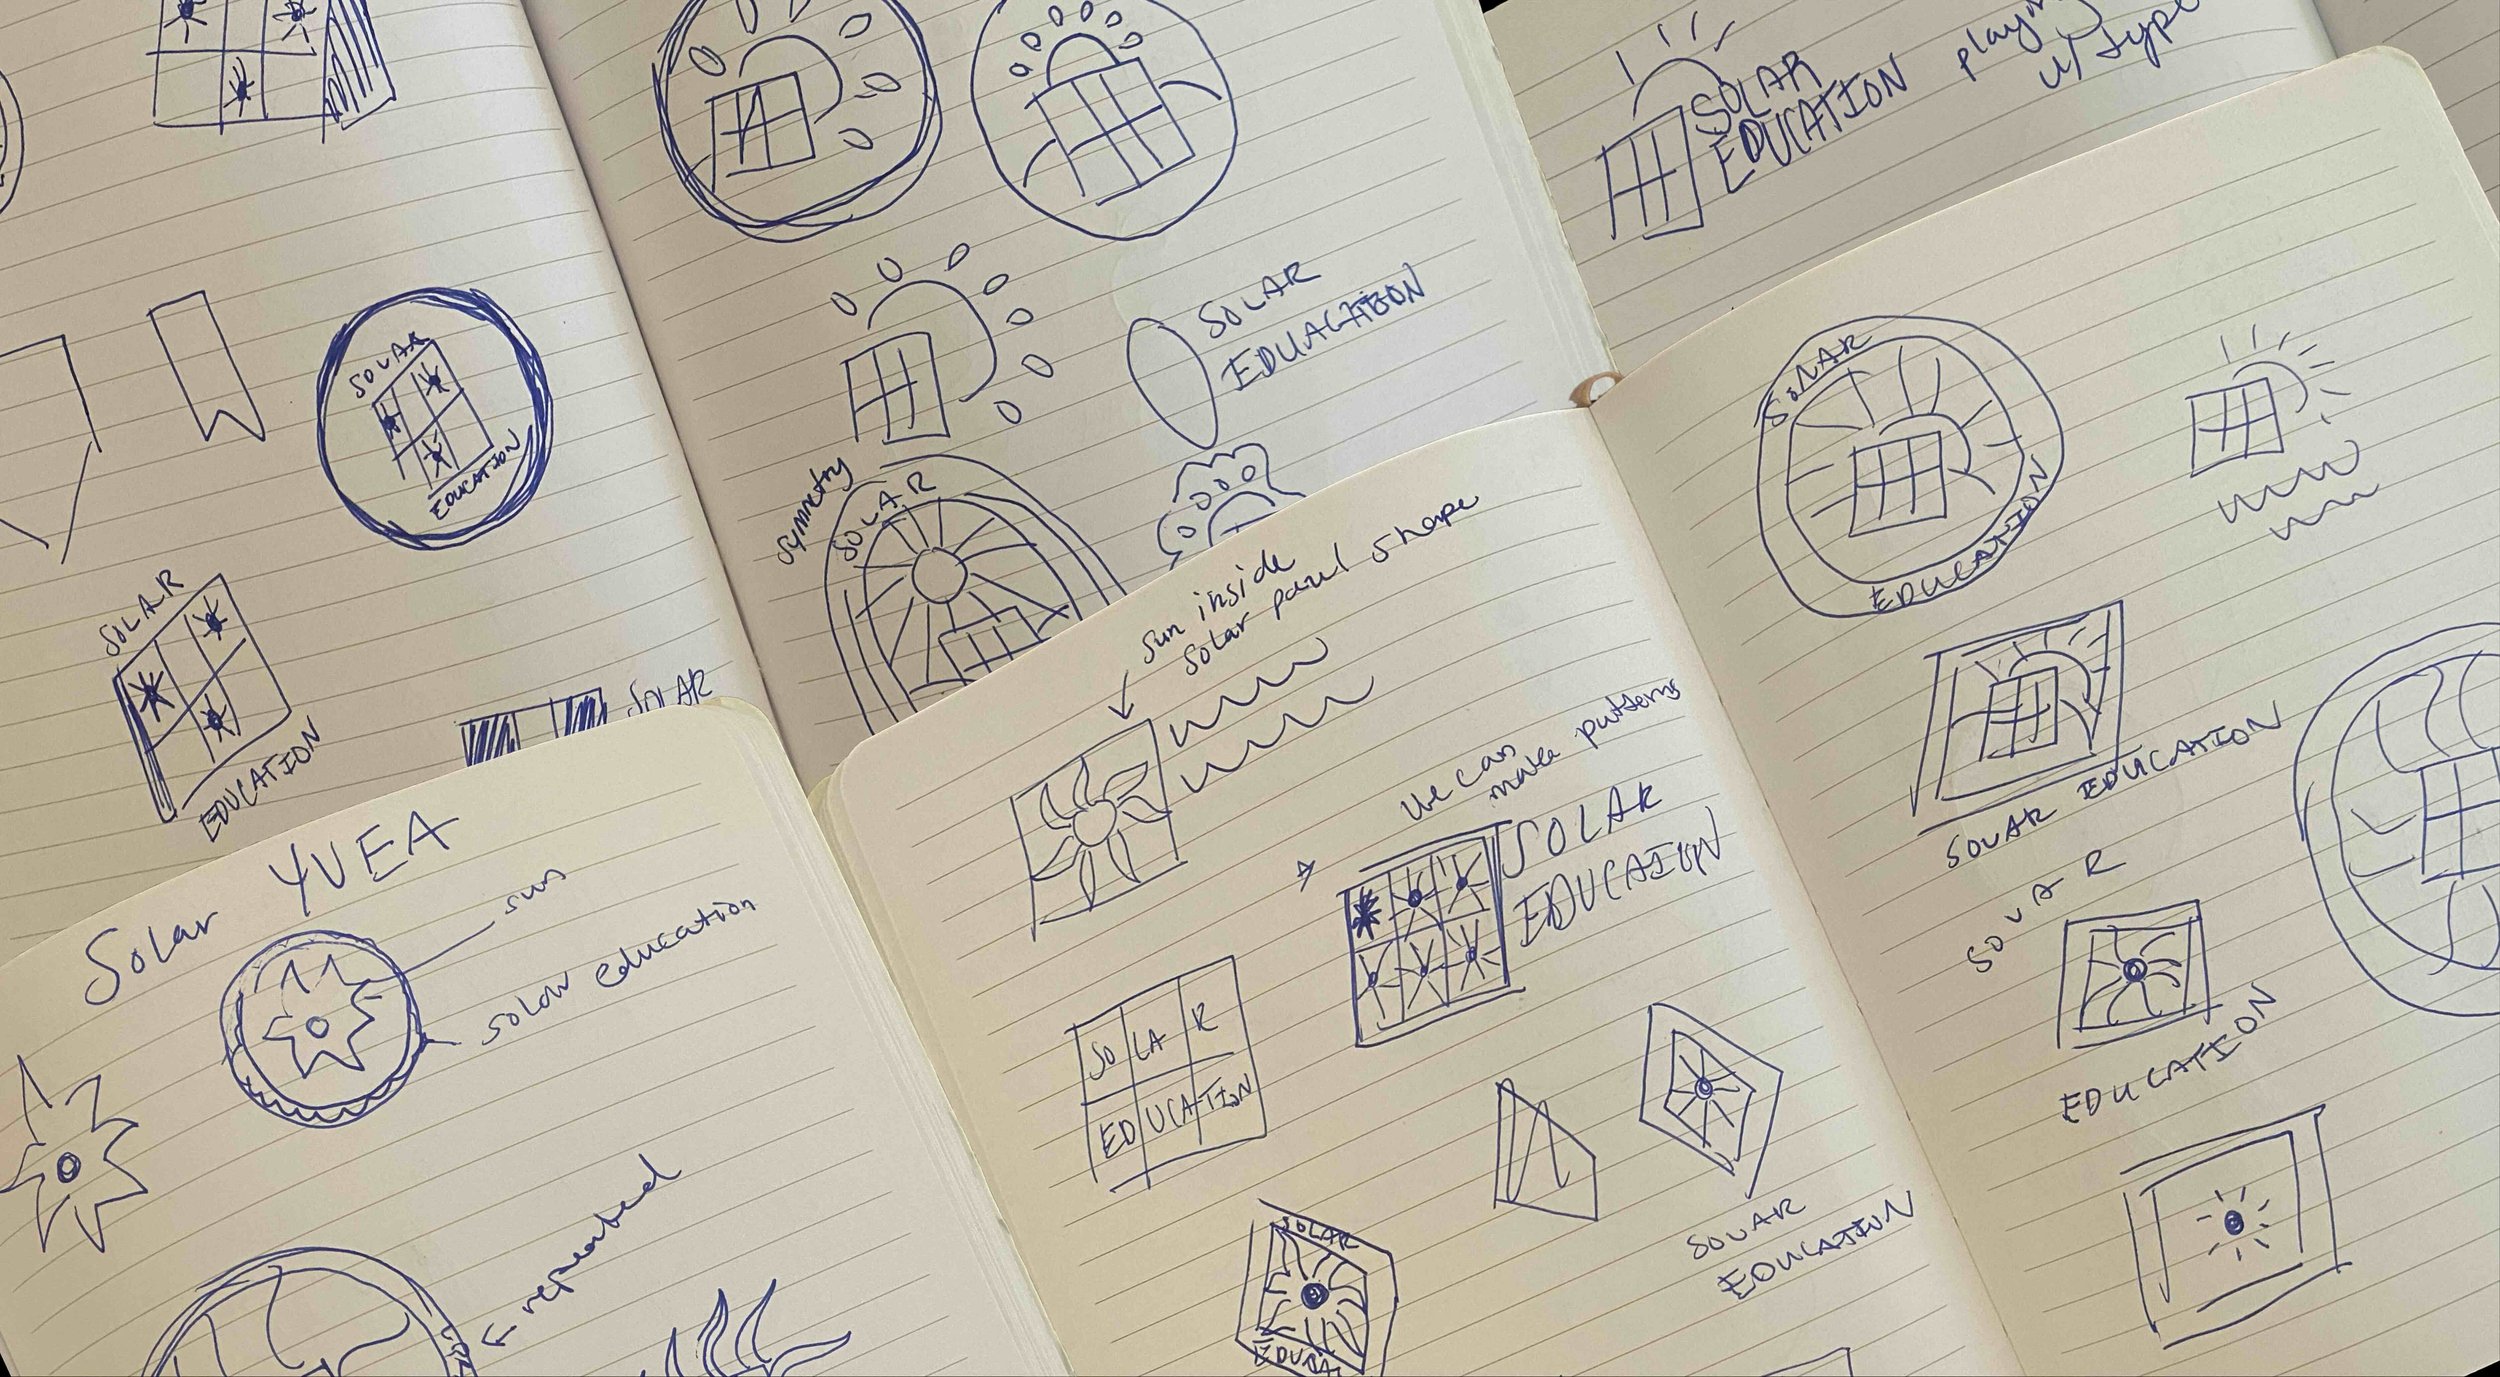 SOLAR
EDUCATION
SOLAR
EDUCATION
SOLAR
SOLAR
EDUACATION
symmetry
SOLAR
SOLAR
EDUCATION
playing
w/ type
Solar YVEA
sun
solar education
repeated
sun inside
solar panel shape
we can
make patterns
SOLAR
EDUCATION
SO LA R
ED UCA TION
SOLAR
EDUCATION
SOLAR
SOLAR
EDUCATION
SOLAR EDUCATION
SOLAR
EDUCATION